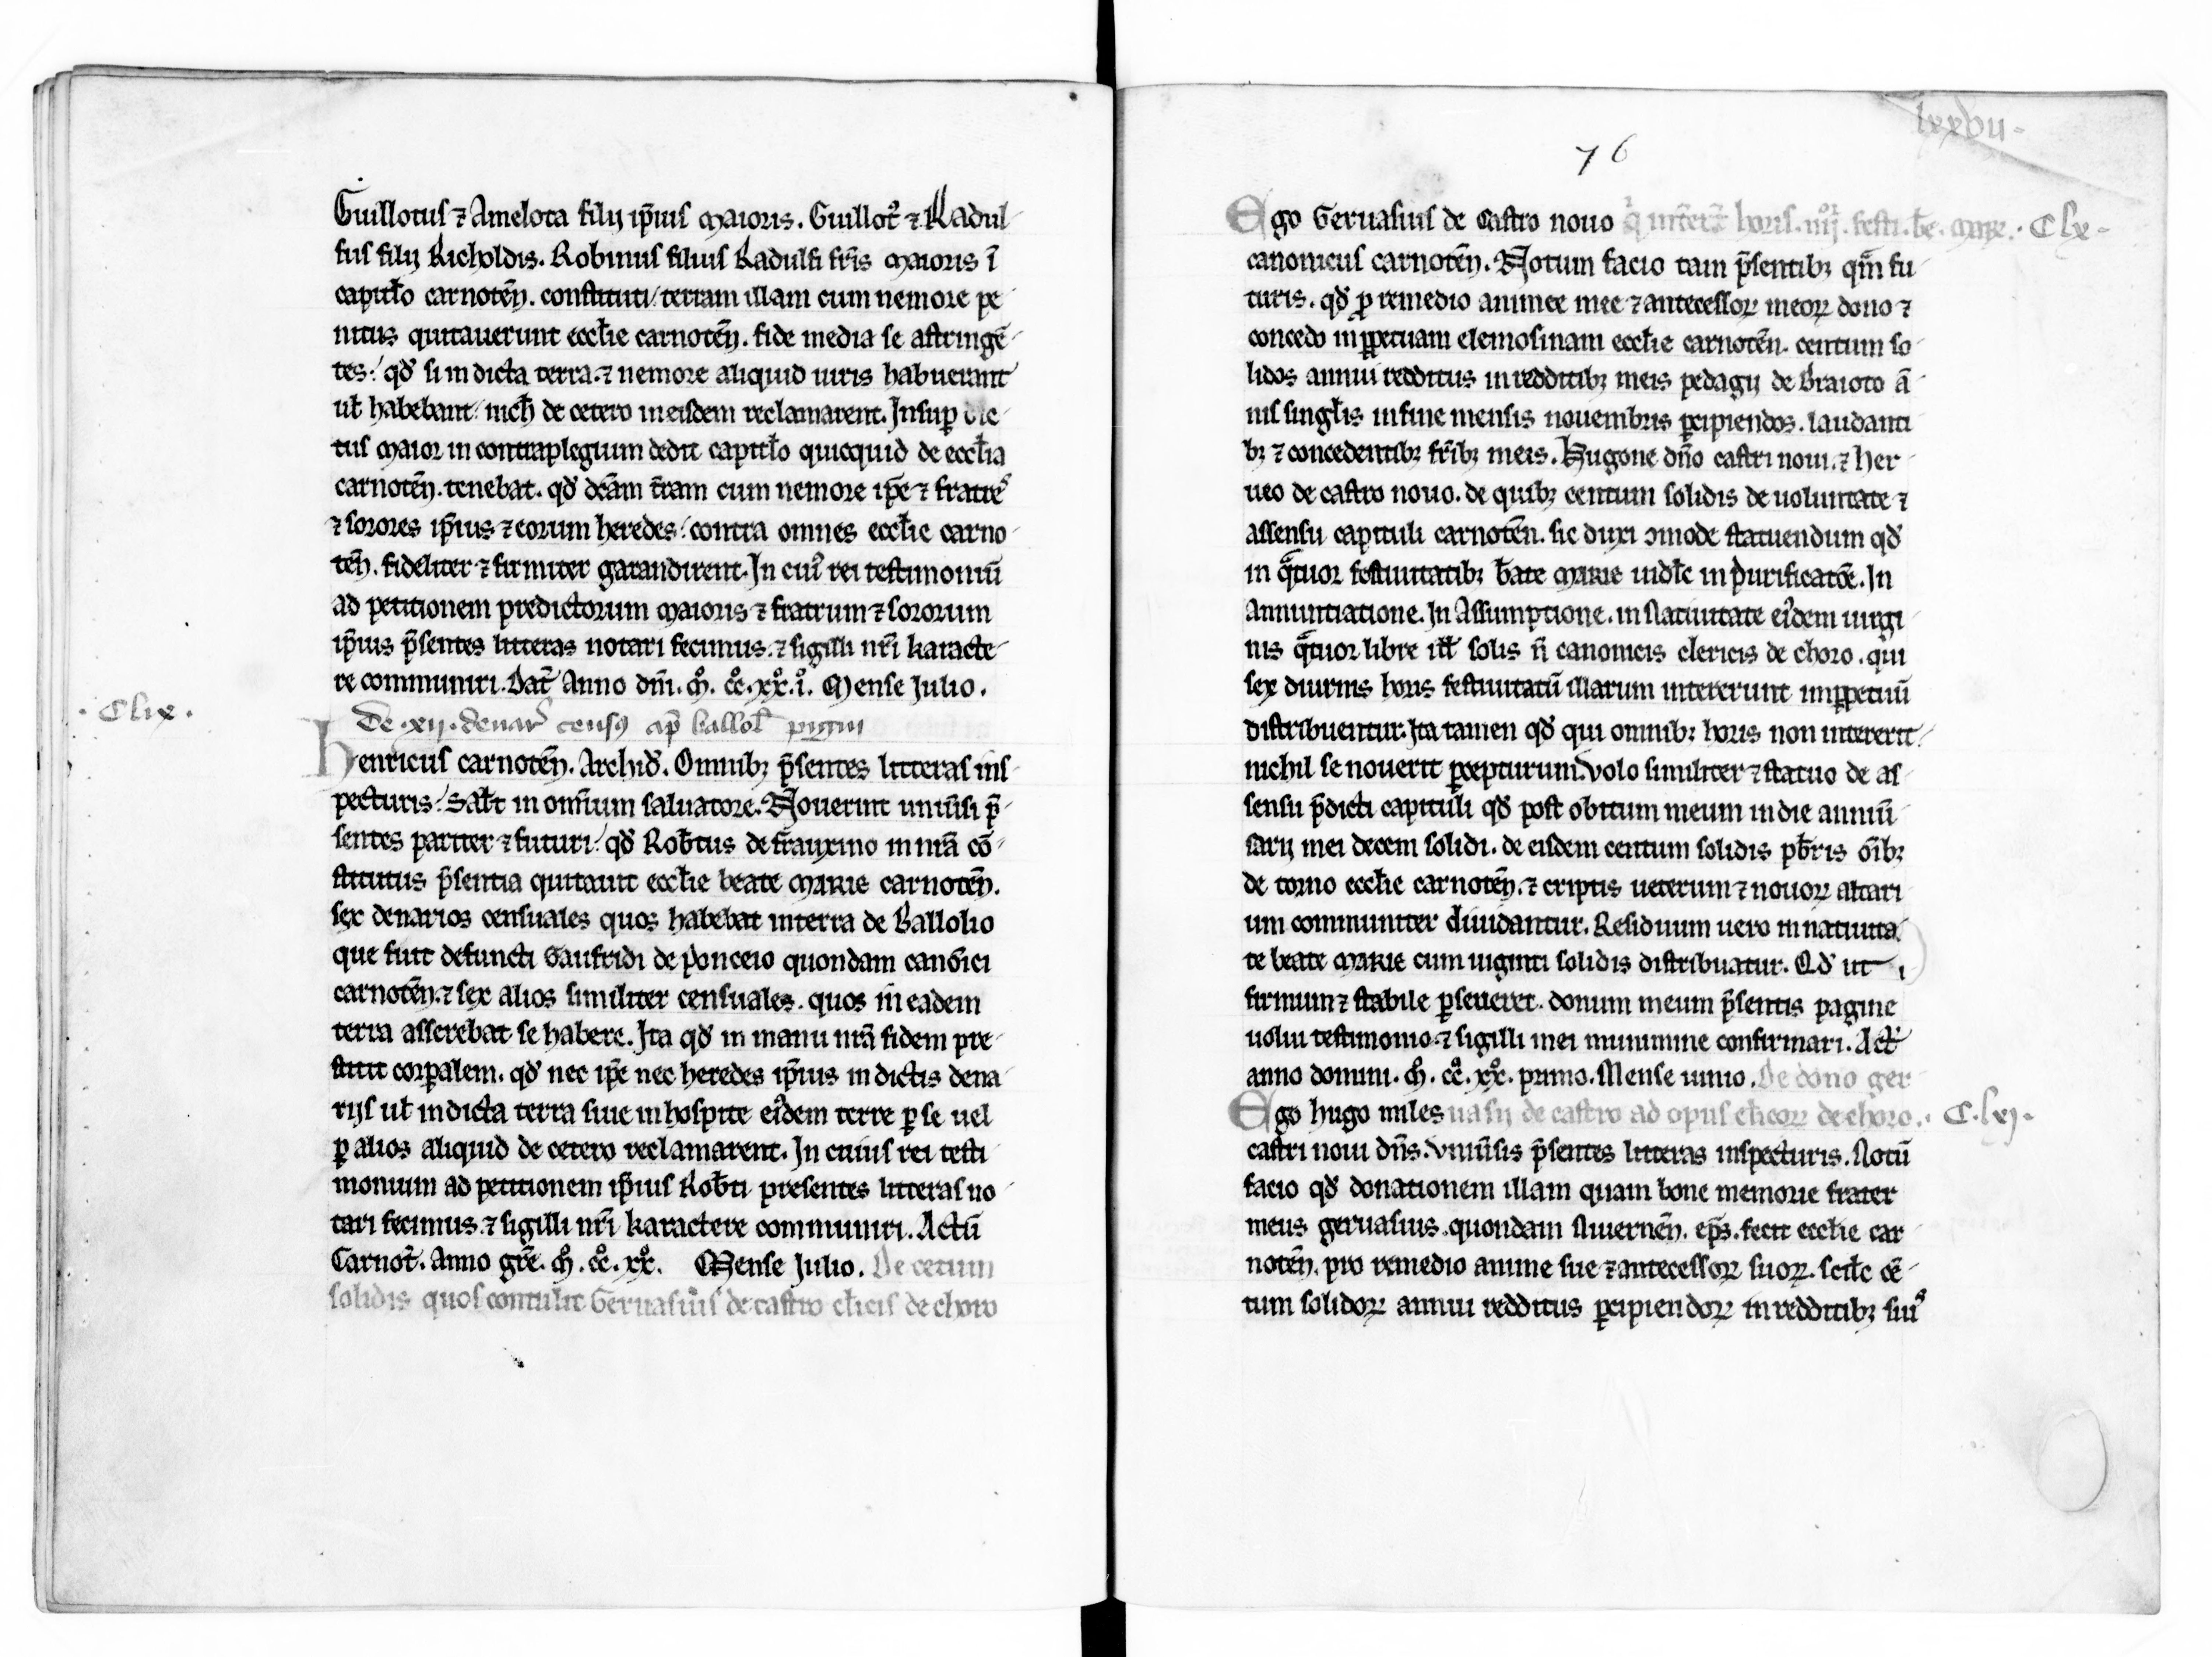 Guillotus ⁊ Amelota filij ip̃ius maioris. Guillot᷒ ⁊ Radul-
fus filij Richoldis. Robinus filius Radulfi fr̃is maioris ĩ
capitl̃o carnotēn. constituti / terram illam cum nemore pe-
nitus quitauerunt eccl̃ie carnotēn. fide media se astringē-
tes: qđ si in dicta terra. ⁊ nemore aliquid iuris habuerant
ul̃ habebant: nich̃ de cetero in eisdem reclamarent. Insuꝑ dic-
tus maior in contraplegium dedit capitl̃o quicquid de eccl̃ia
carnotēn. tenebat. qđ dc̃am t̃ram cum nemore ip̃e ⁊ fratres
⁊ sorores ip̃ius ⁊ eorum heredes: contra omnes eccl̃ie carno-
tēn. fideliter ⁊ firmiter garandirent. In cui᷒ rei testimoniū
ad petitionem predictorum maioris ⁊ fratrum ⁊ sororum
ip̃ius p̃sentes litteras notari fecimus. ⁊ sigilli nr̃i karacte-
re communiri. Dat̃ Anno dñi. m̊. cc̊. xx̊. i̊. Mense Julio.
. Clix .
De .xij. denar̃ censꝰ ap̃ ballol̃
Henricus carnotēn. Archid̃. Omnibꝫ p̃sentes litteras ins-
pecturis: Sal̃t in om̃ium saluatore. Nouerint uniũsi p̃-
sentes pariter ⁊ futuri: qđ Rob̃tus de fraxino in nr̃a cō-
stitutus p̃sentia quitauit eccl̃ie beate Marie carnotēn.
sex denarios censuales quos habebat in terra de Ballolio
que fuit defuncti Gaufridi de ponceio quondam canōici
carnotēn. ⁊ sex alios similiter censuales. quos in eadem
terra asserebat se habere. Ita qđ in manu nr̃a fidem pre-
stitit corꝑalem. qđ nec ip̃e nec heredes ip̃ius in dictis dena-
rijs ul̃ in dicta terra siue in hospite ei᷒dem terre ꝑ se uel
ꝑ alios aliquid de cetero reclamarent. In cuius rei testi-
monium ad petitionem ip̃ius Rob̃ti presentes litteras no-
tari fecimus. ⁊ sigilli nr̃i karactere communiri. Actū
Carnot̃. Anno gr̃e. m̊. cc̊. xx̊. Mense Julio. De cētum
solidis quos contulit Geruasius de castro cl̃icis de choro
lxxvii.
76
Ego Geruasius de castro nouo q̇ intẽr̃t horis. iiijor. festi. b̃e. marie. . Clx.
canonicus carnotēn. Notum facio tam p̃sentibꝫ qm̃ fu-
turis. qđ ꝓ remedio animee mee ⁊ antecessoꝝ meoꝝ dono ⁊
concedo in ꝑpetuam elemosinam eccl̃ie carnotēn. centum so-
lidos annui redditus in redditibꝫ meis pedagij de Braioto ā-
nis singl̃is in fine mensis nouembris ꝑcipiendos. laudanti-
bꝫ ⁊ concedentibꝫ fr̃ibꝫ meis. Hugone dño castri noui. ⁊ Her-
ueo de castro nouo. de quibꝫ centum solidis de uoluntate ⁊
assensu capituli carnotēn. sic duxi ꝯmode statuendum qđ
in qͣtuor festiuitatibꝫ b̃ate Marie uidl̃c in purificatōe. In
annuntiatione. In Assumptione. in Natiuitate ei᷒dem uirgi-
nis qͣtuor libre ill̃ solis ñ canonicis clericis de choro. qui
sex diurnis horis festiuitatū illarum intererunt inꝑpetuū
distribuentur. Ita tamen qđ qui omnibꝫ horis non intererit:
nichil se nouerit ꝑcepturum. volo similiter ⁊ statuo de as-
sensu p̃dicti capituli qđ post obitum meum in die anniũ-
sarij mei decem solidi. de eisdem centum solidis pb̃ris ōibꝫ
de torno eccl̃ie carnotēn. ⁊ criptis ueterum ⁊ nouoꝝ altari-
um communiter diuidantur. Residuum uero in natiuita-
te beate Marie cum uiginti solidis distribuatur. Qđ ut
firmum ⁊ stabile ꝑseueret. donum meum p̃sentis pagine
uolui testimonio. ⁊ sigilli mei munimine confirmari. Act̃
anno domini. m̊. cc̊. xx̊. primo. Mense iunio. De dono ger-
Ego hugo miles uasij de castro ad opus cl̃icoꝝ de choro. . C.lxj.
castri noui dñs. vniũsis p̃sentes litteras inspecturis. Notū
facio qđ donationem illam quam bone memorie frater
meus geruasius. quondam Niuernēn. ep̃s. fecit eccl̃ie car-
notēn. pro remedio anime sue ⁊ antecessoꝝ suoꝝ. scil̃c cē-
tum solidoꝝ annui redditus ꝑcipiendoꝝ in redditibꝫ suis